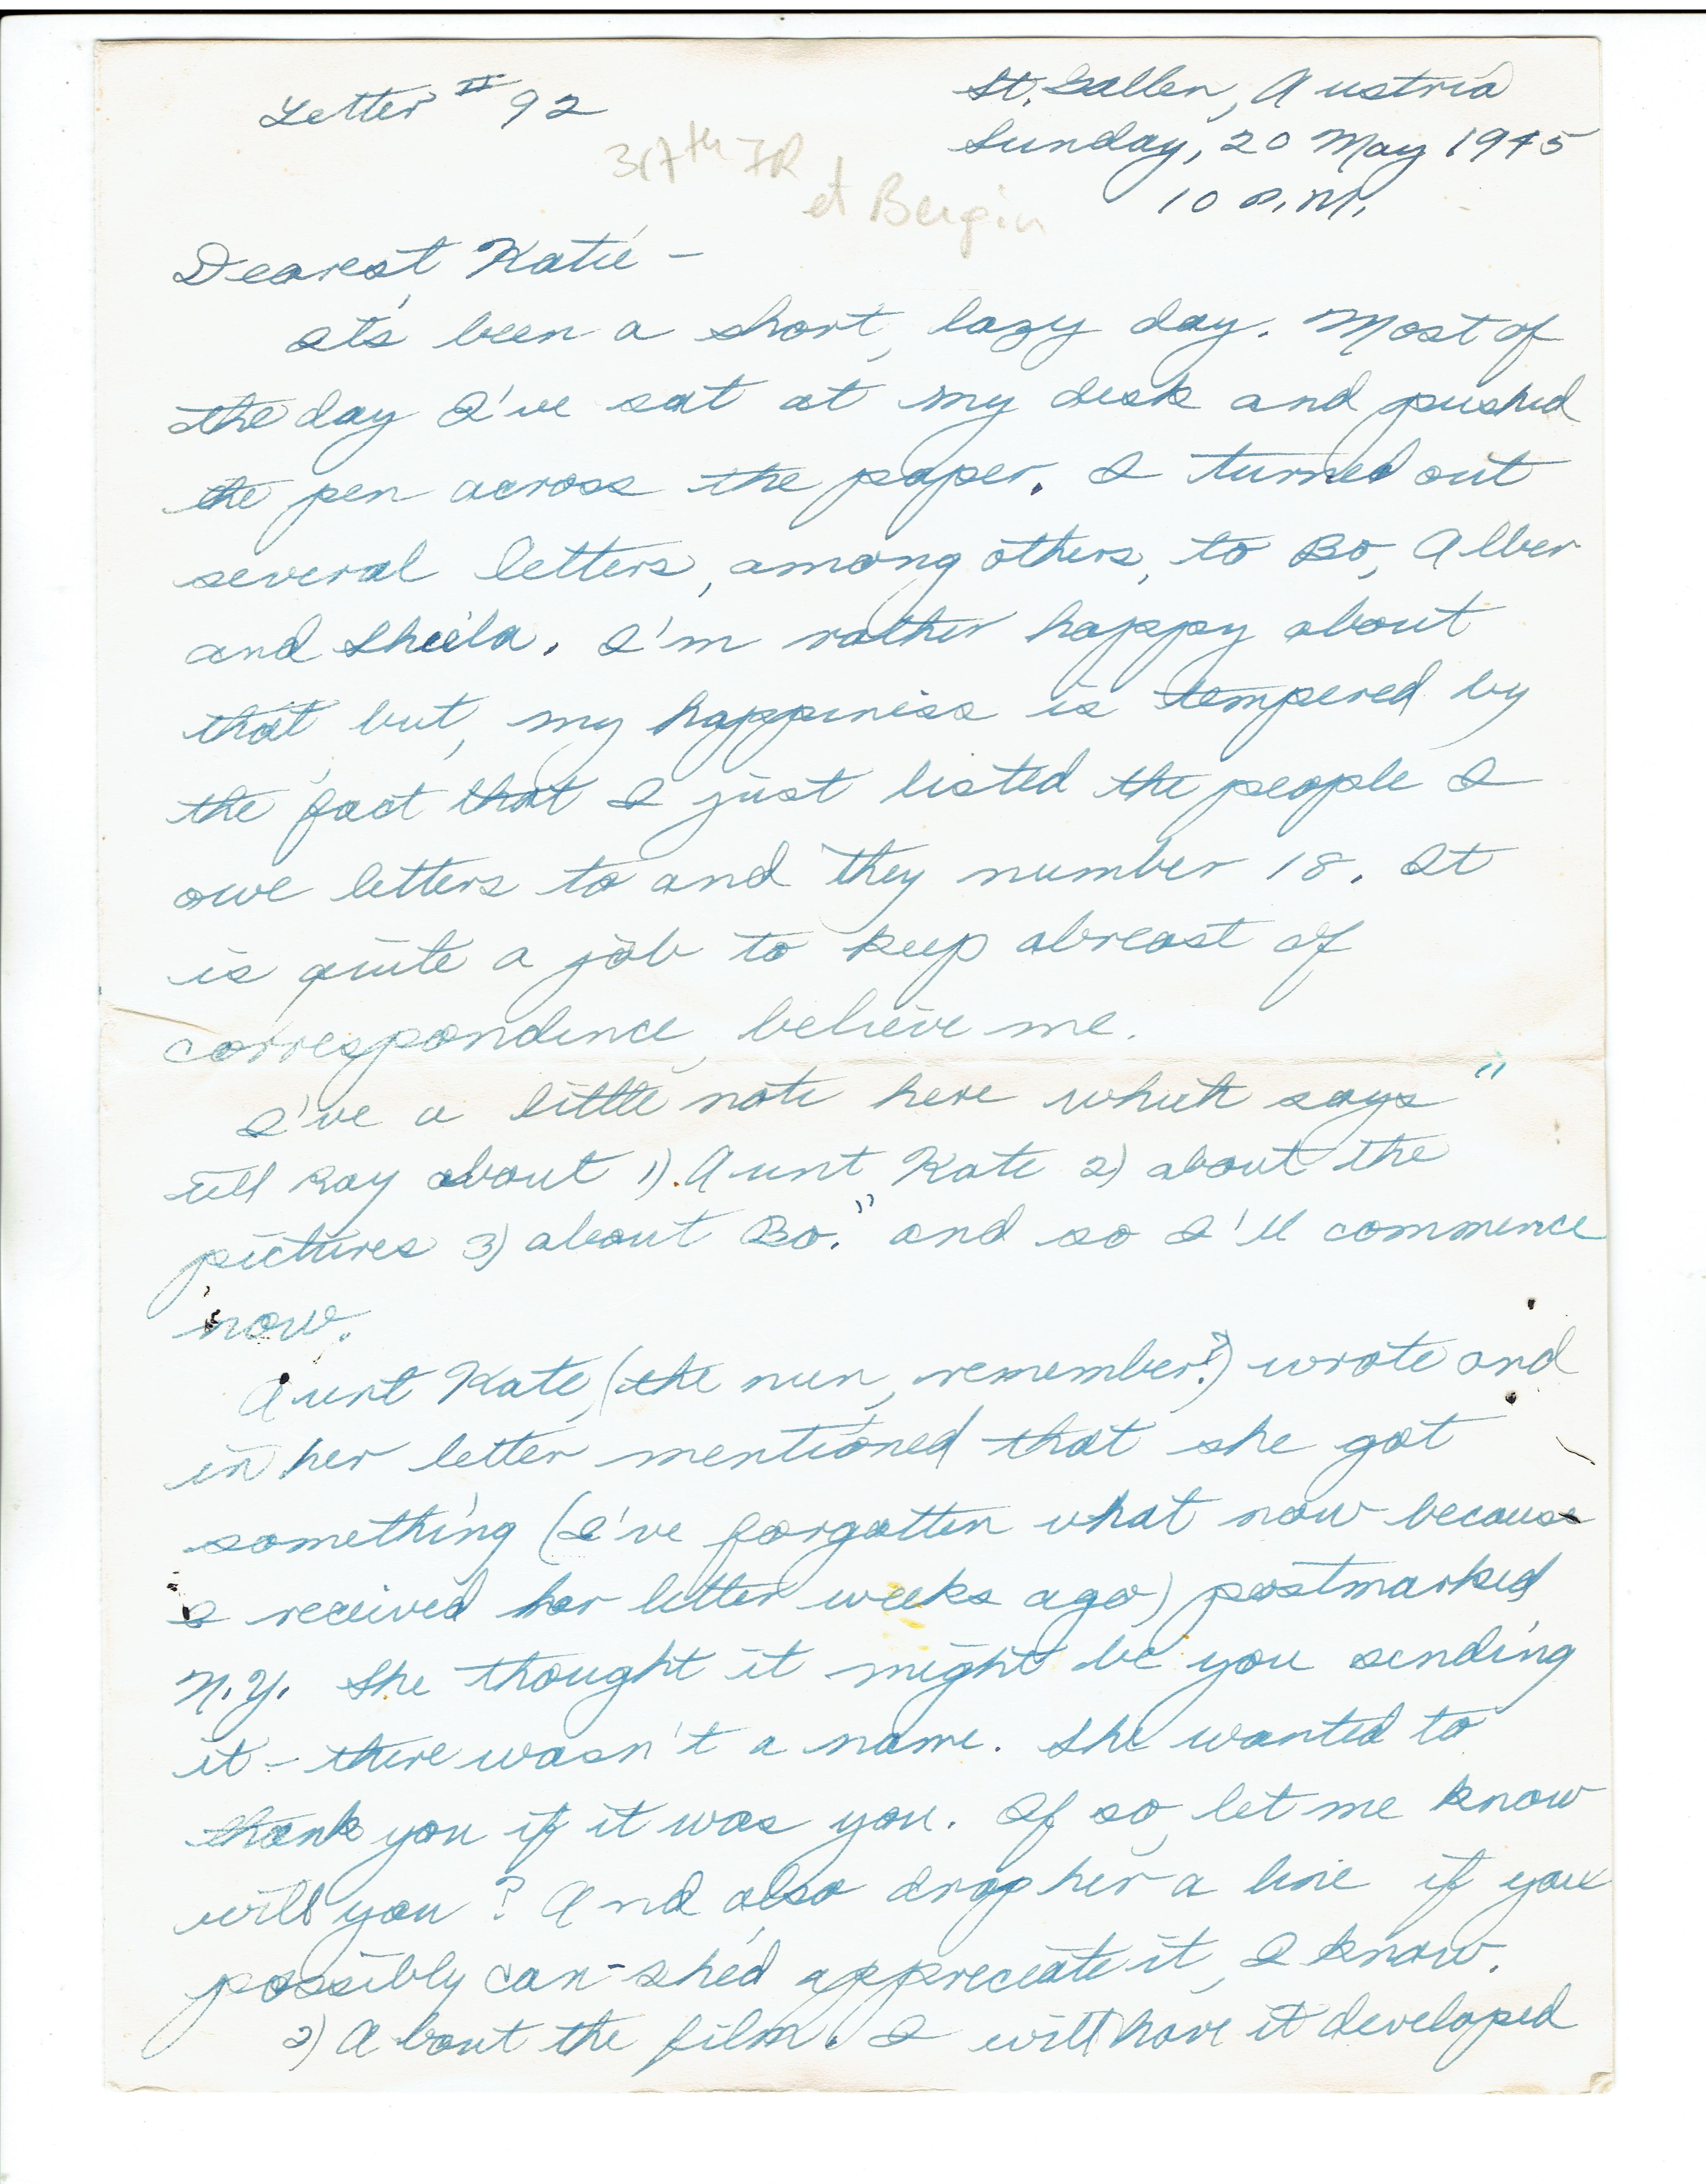 Letter # 92
St. Gallen, Austria
Sunday, 20 May 1945
10 P.M.
317th IR
et Bergin
Dearest Katie -
It's been a short, lazy day. Most of
the day I've sat at my desk and pushed
the pen across the paper. I turned out
several letters, among others, to Bo, Alber
and Sheila. I'm rather happy about
that but, my happiness is tempered by
the fact that I just listed the people I
owe letters to and they number 18. It
is quite a job to keep abreast of
correspondence, believe me.
I've a little note here which says "
tell Kay about 1) Aunt Kate 2) about the
pictures 3) about Bo." and so I'll commence
now.
Aunt Kate, (the nun, remember?) wrote and
in her letter mentioned that she got
something (I've forgotten what now because
I received her letter weeks ago) postmarked
N.Y. She thought it might be you sending
it - there wasn't a name. She wanted to
thank you if it was you. If so, let me know
will you? And also drop her a line if you
possibly can - she'd appreciate it, I know.
2) About the film. I will have it developed